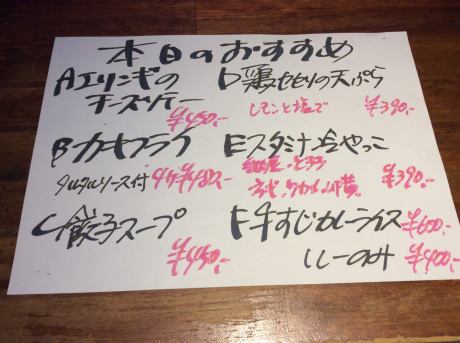 本日のおすすめ
Aエリンギの
チーズソテー
¥450-
Bカキフライ
タルタルソース付 4ケ¥480-
C餃子スープ
¥450-
D鶏セセリの天ぷら
レモンと塩で ¥390-
Eスタミナ冷やっこ
¥390-
F牛すじカレーライス ¥600-
ルーのみ ¥400-